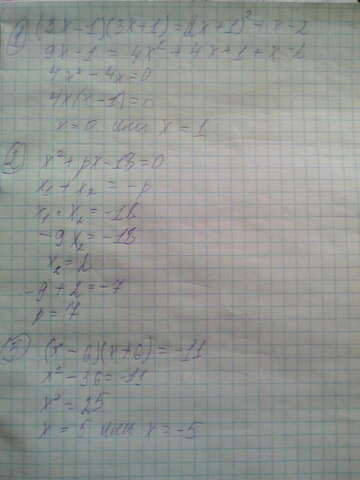 1) (3x-1)(3x+1)=(2x+1)² - x-2
9x-1 = 4x² + 4x+1 + x-2
4x² - 4x=0
4x(x-1)=0
x=0 или x=1
2) x²+px-18=0
x₁ + x₂ = -p
x₁ · x₂ = -18
-9x₂ = -18
x₂ = 2
-9+2=-7
p=7
3) (x-6)(x+6)=-11
x²-36=-11
x²=25
x=5 или x=-5